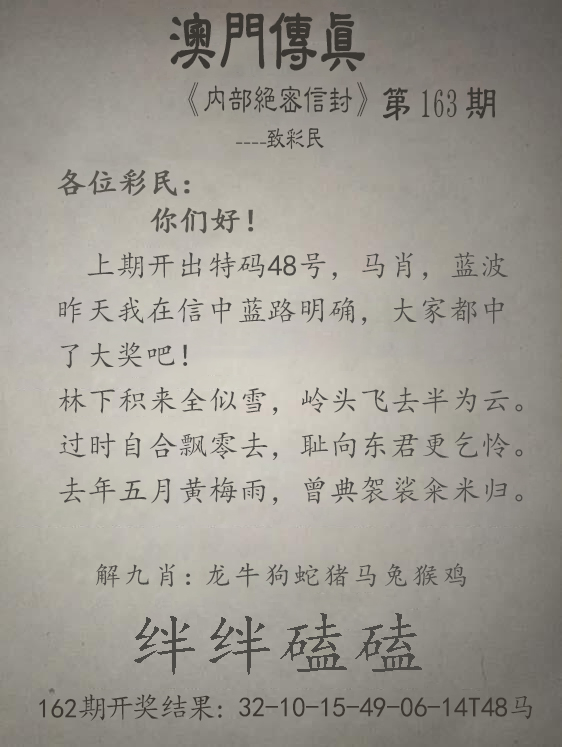 澳門傳真
《内部絕密信封》第163期
----致彩民
各位彩民：
你们好！
上期开出特码48号，马肖，蓝波
昨天我在信中蓝路明确，大家都中
了大奖吧！
林下积来全似雪，岭头飞去半为云。
过时自合飘零去，耻向东君更乞怜。
去年五月黄梅雨，曾典袈裟籴米归。
解九肖：龙牛狗蛇猪马兔猴鸡
绊绊磕磕
162期开奖结果：32-10-15-49-06-14T48马